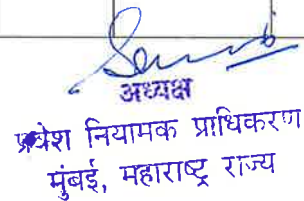 अध्यक्ष
प्रवेश नियामक प्राधिकरण
मुंबई, महाराष्ट्र राज्य